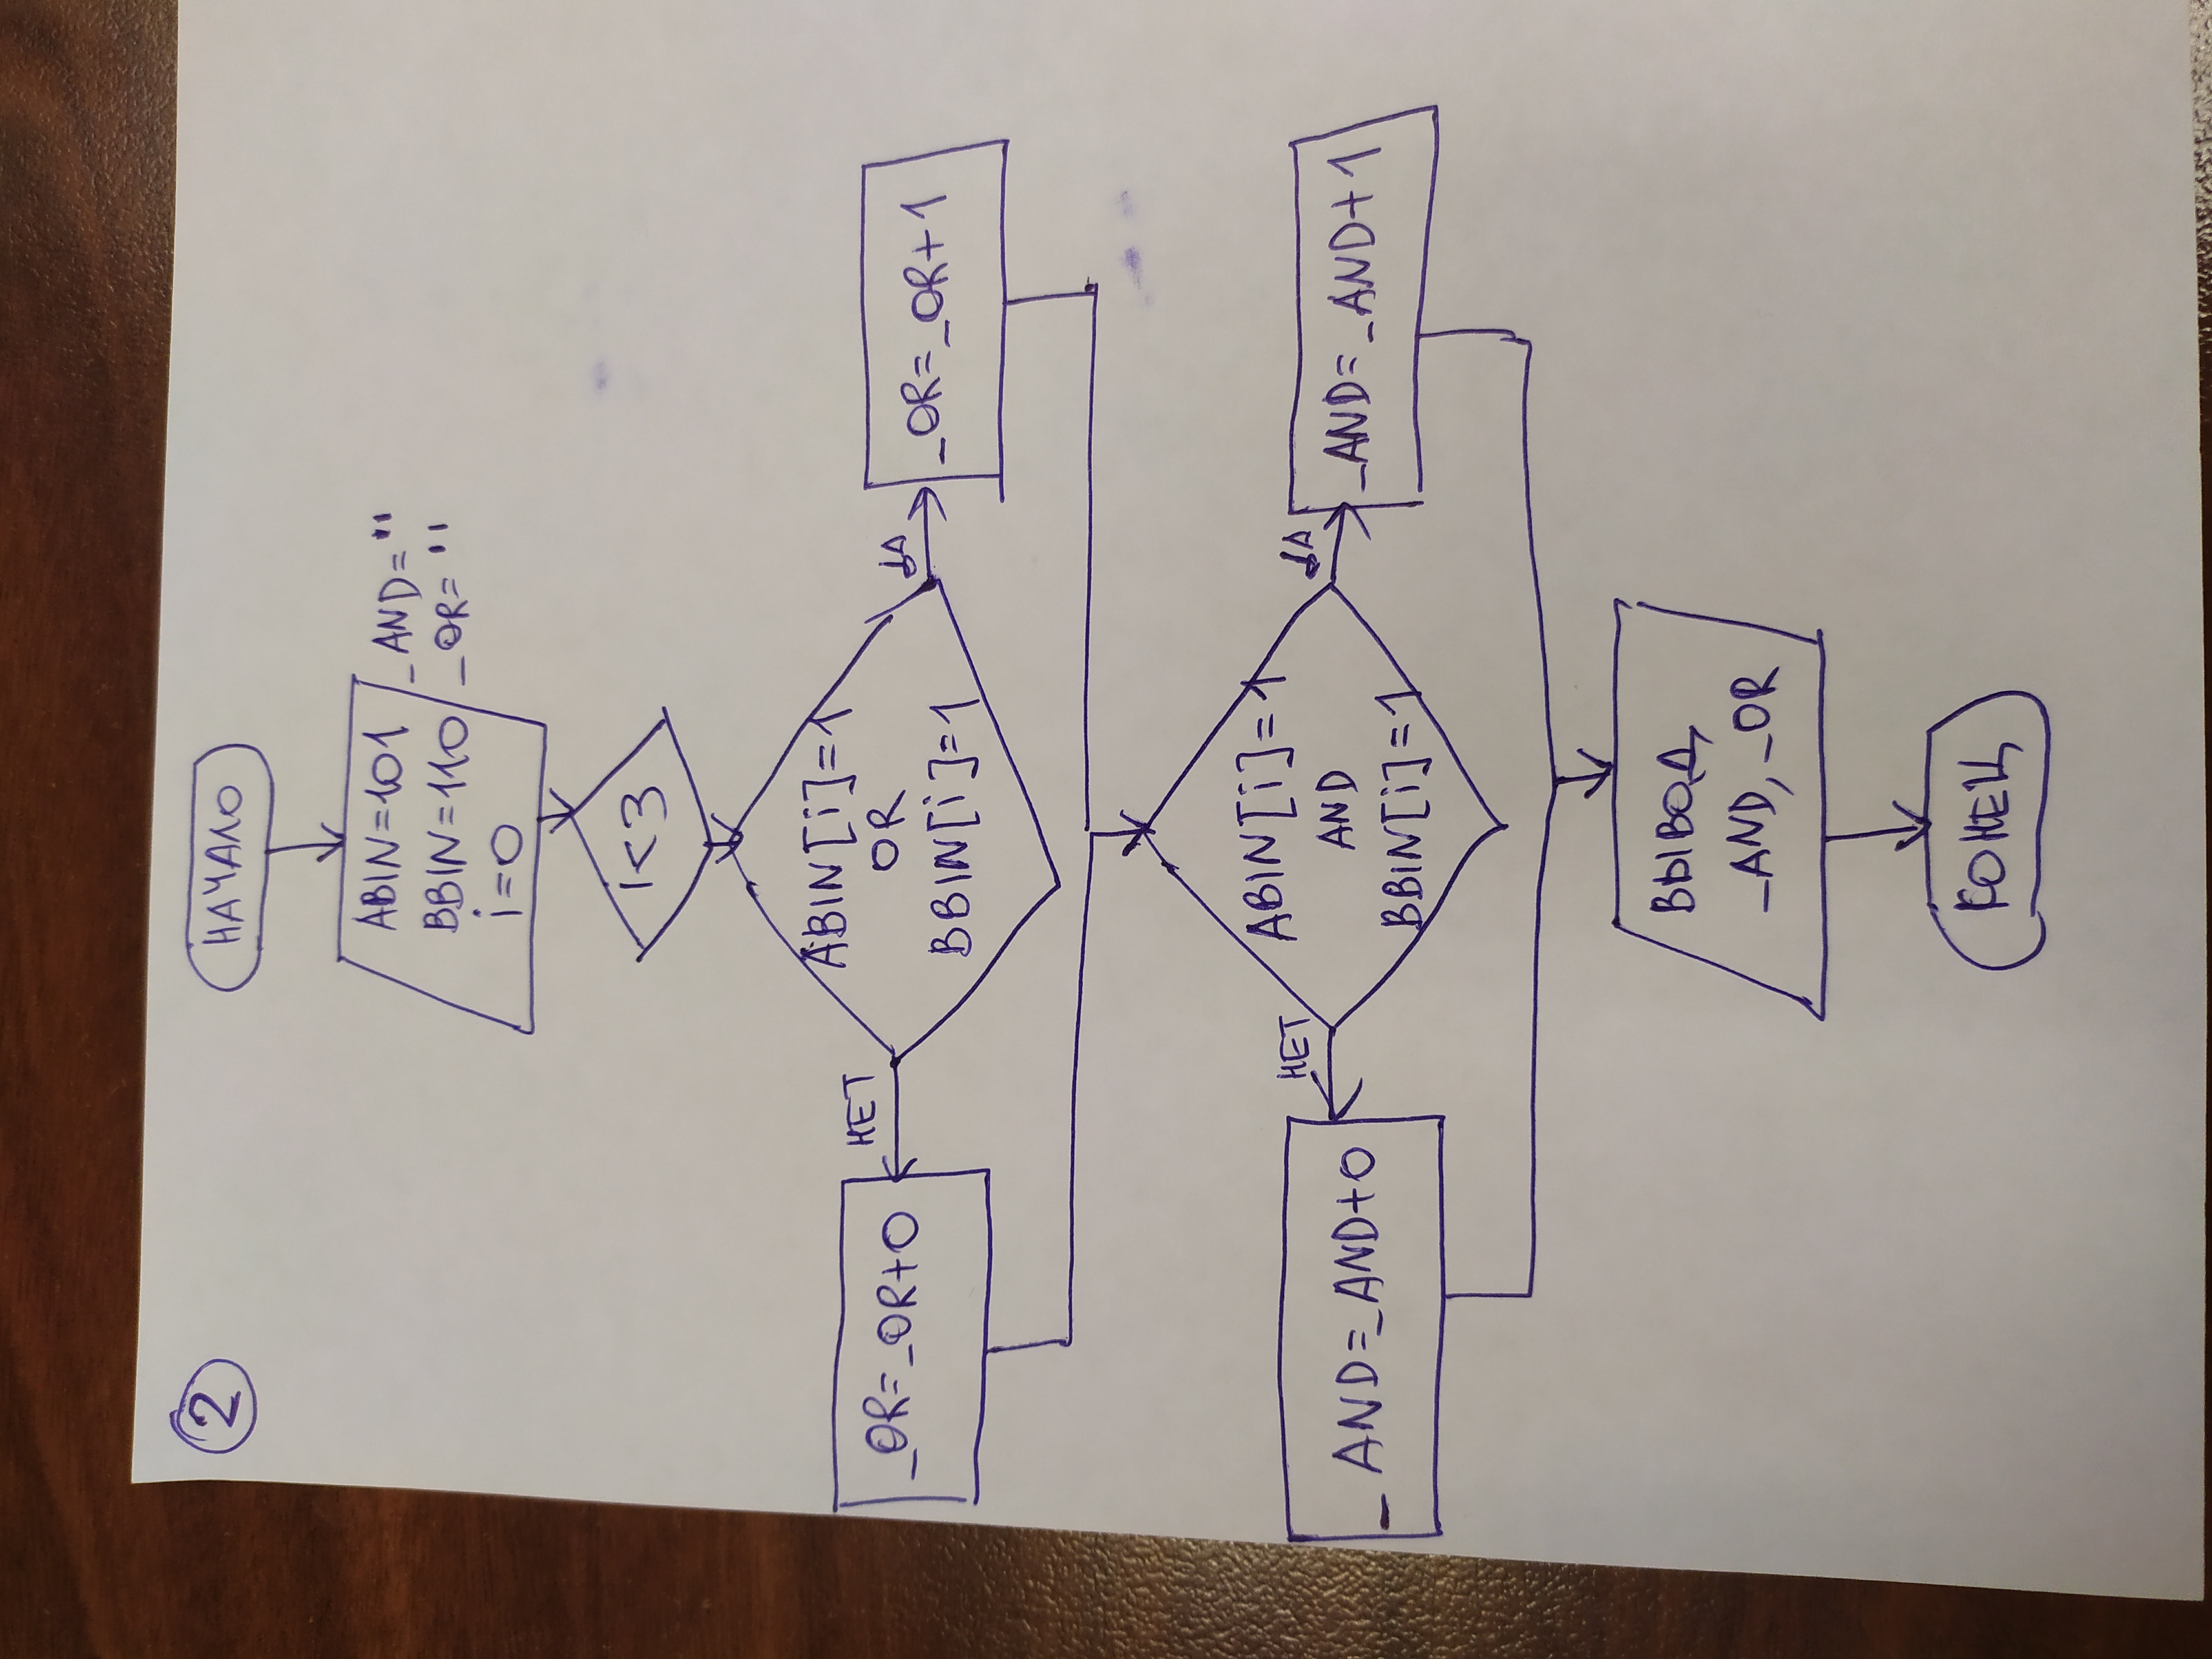 2
НАЧАЛО
ABIN=101
_AND=""
BBIN=110
_OR=''
i=0
i<3
ABIN[i]=1
OR
BBIN[i]=1
НЕТ
ДА
_OR=_OR+0
_OR=_OR+1
ABIN[i]=1
AND
BBIN[i]=1
НЕТ
ДА
_AND=_AND+0
_AND=_AND+1
ВЫВОД
_AND, _OR
КОНЕЦ